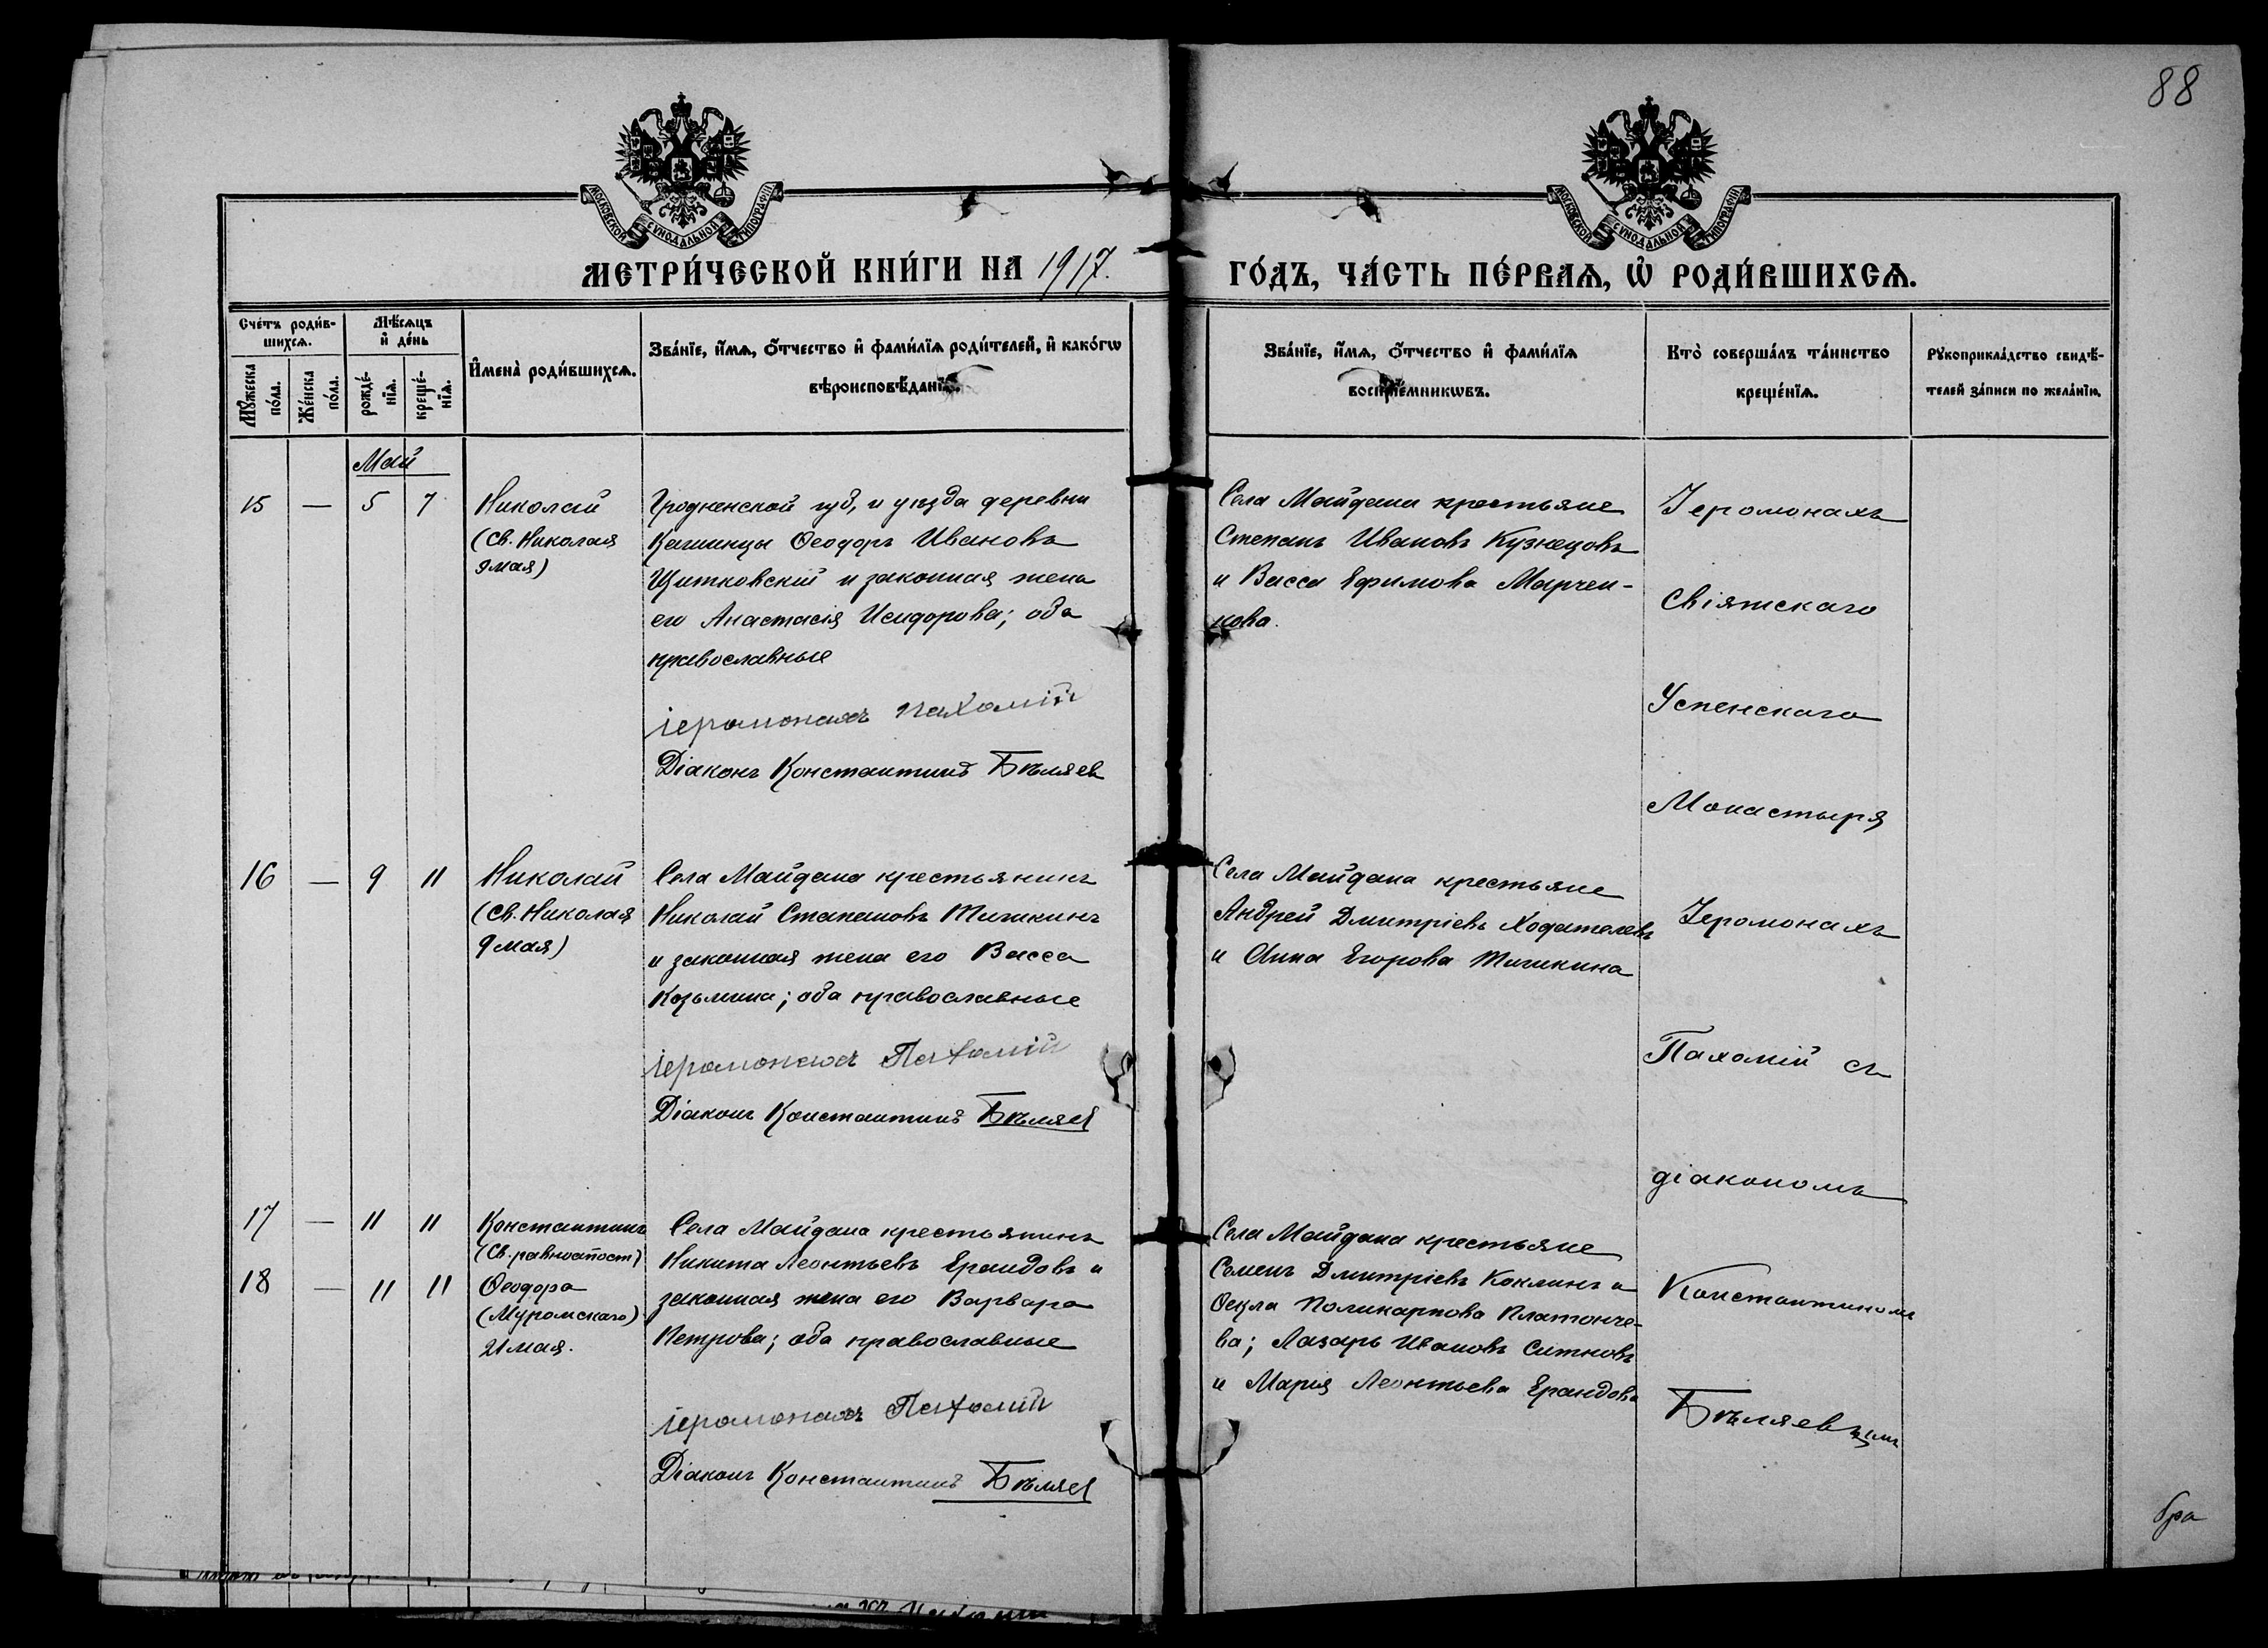 88
МОСКОВСКОЙ СѴНОДАЛЬНОЙ ТИПОГРАФІИ
МОСКОВСКОЙ СѴНОДАЛЬНОЙ ТИПОГРАФІИ
МЕТРИ́ЧЕСКОЙ КНИ́ГИ НА 1917.
ГО́ДЪ, ЧА́СТЬ ПЕ́РВАѦ, Ѡ҆ РОДИ́ВШИХСѦ.
Сче́тъ роди́в-
шихсѧ.
Мꙋ́жеска
по́ла.
Же́нска
по́ла.
Мѣ́сѧцъ
и҆ де́нь
рожде́-
нїѧ.
креще́-
нїѧ.
И҆мена̀ роди́вшихсѧ.
Зва́нїе, и҆́мѧ, ѻ҆́тчество и҆ фами́лїѧ роди́телей, и҆ како́гѡ
вѣроисповѣ́данїѧ.
Зва́нїе, и҆́мѧ, ѻ҆́тчество и҆ фами́лїѧ
воспрїе́мникѡвъ.
Кто̀ соверша́лъ та́инство
креще́нїѧ.
Рꙋкоприкла́дство свидѣ́-
телей за́писи по жела́нїю.
Май
15 — 5 7
Николай
(Св. Николая
9 мая)
Гродненской губ, и уѣзда деревни
Феодоръ Ивановъ
и законная жена
его Анастасія Исидорова; оба
православные
іеромонахъ Пахомій
Діаконъ Константинъ Бѣляев
Села Майдана крестьяне
Степанъ Ивановъ Кузнецовъ
и Васса Ефимова Марчен-
кова.
Іеромонахъ
Свіяжскаго
Успенскаго
Монастыря
16 — 9 11
Николай
(Св. Николая
9 мая)
Села Майдана крестьянинъ
Николай Степановъ Тишкинъ
и законная жена его Васса
Козьмина; оба православные
іеромонахъ Пахомій
Діаконъ Константинъ Бѣляев
Села Майдана крестьяне
Андрей Дмитріевъ Ходателевъ
и Анна Егорова Тишкина
Іеромонахъ
Пахомій съ
діакономъ
17 — 11 11
Константинъ
(Св. равноапост)
18 — 11 11
Феодора
(Муромскаго)
21 мая.
Села Майдана крестьянинъ
Никита Леонтьевъ Ерандовъ и
законная жена его Варвара
Петрова; оба православные
іеромонахъ Пахомій
Діаконъ Константинъ Бѣляев
Села Майдана крестьяне
Семенъ Дмитріевъ Коклинъ и
Фекла Поликарпова Платонче-
ва; Лазарь Ивановъ Ситновъ
и Марія Леонтьева Ерандова
Константиномъ
Бѣляевымъ
бра